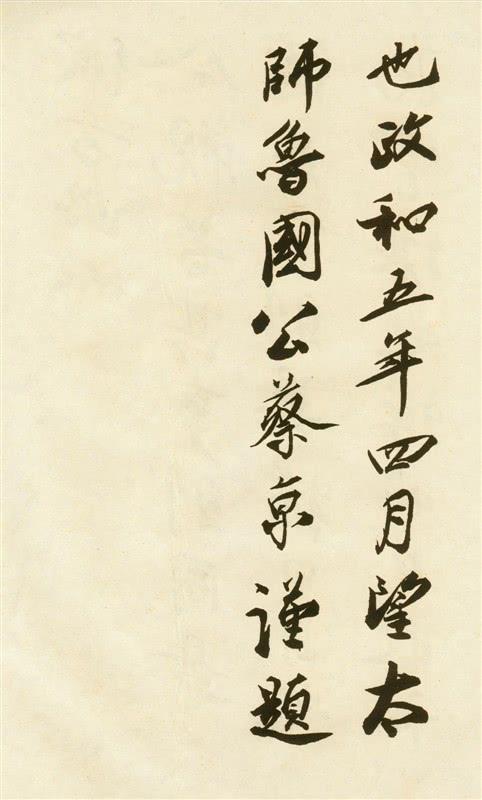 也政和五年四月望太
師魯國公蔡京謹題